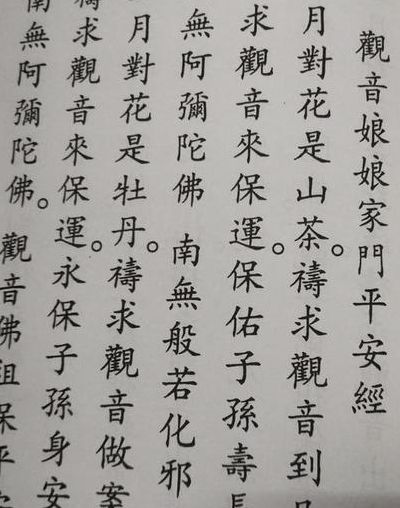 觀音娘娘家門平安經
月對花是山茶。禱求觀音到
求觀音來保運。保佑子孫壽長
無阿彌陀佛 南無般若化邪
月對花是牡丹。禱求觀音做案
禱求觀音來保運。永保子孫身安
南無阿彌陀佛。觀音佛祖保平